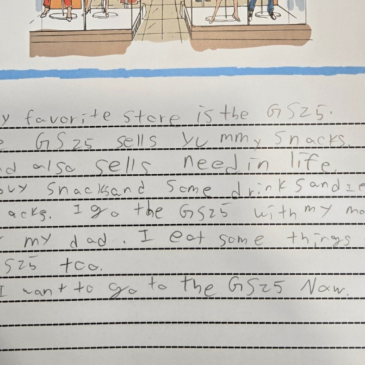 y favorite store is the GS25.
GS25 sells yummy snacks.
nd also sells need in life.
uy snacksand some drinksandze
acks. I go the GS25 with my mo
my dad. I eat some things
S25 too.
I want to go to the GS25 Now.